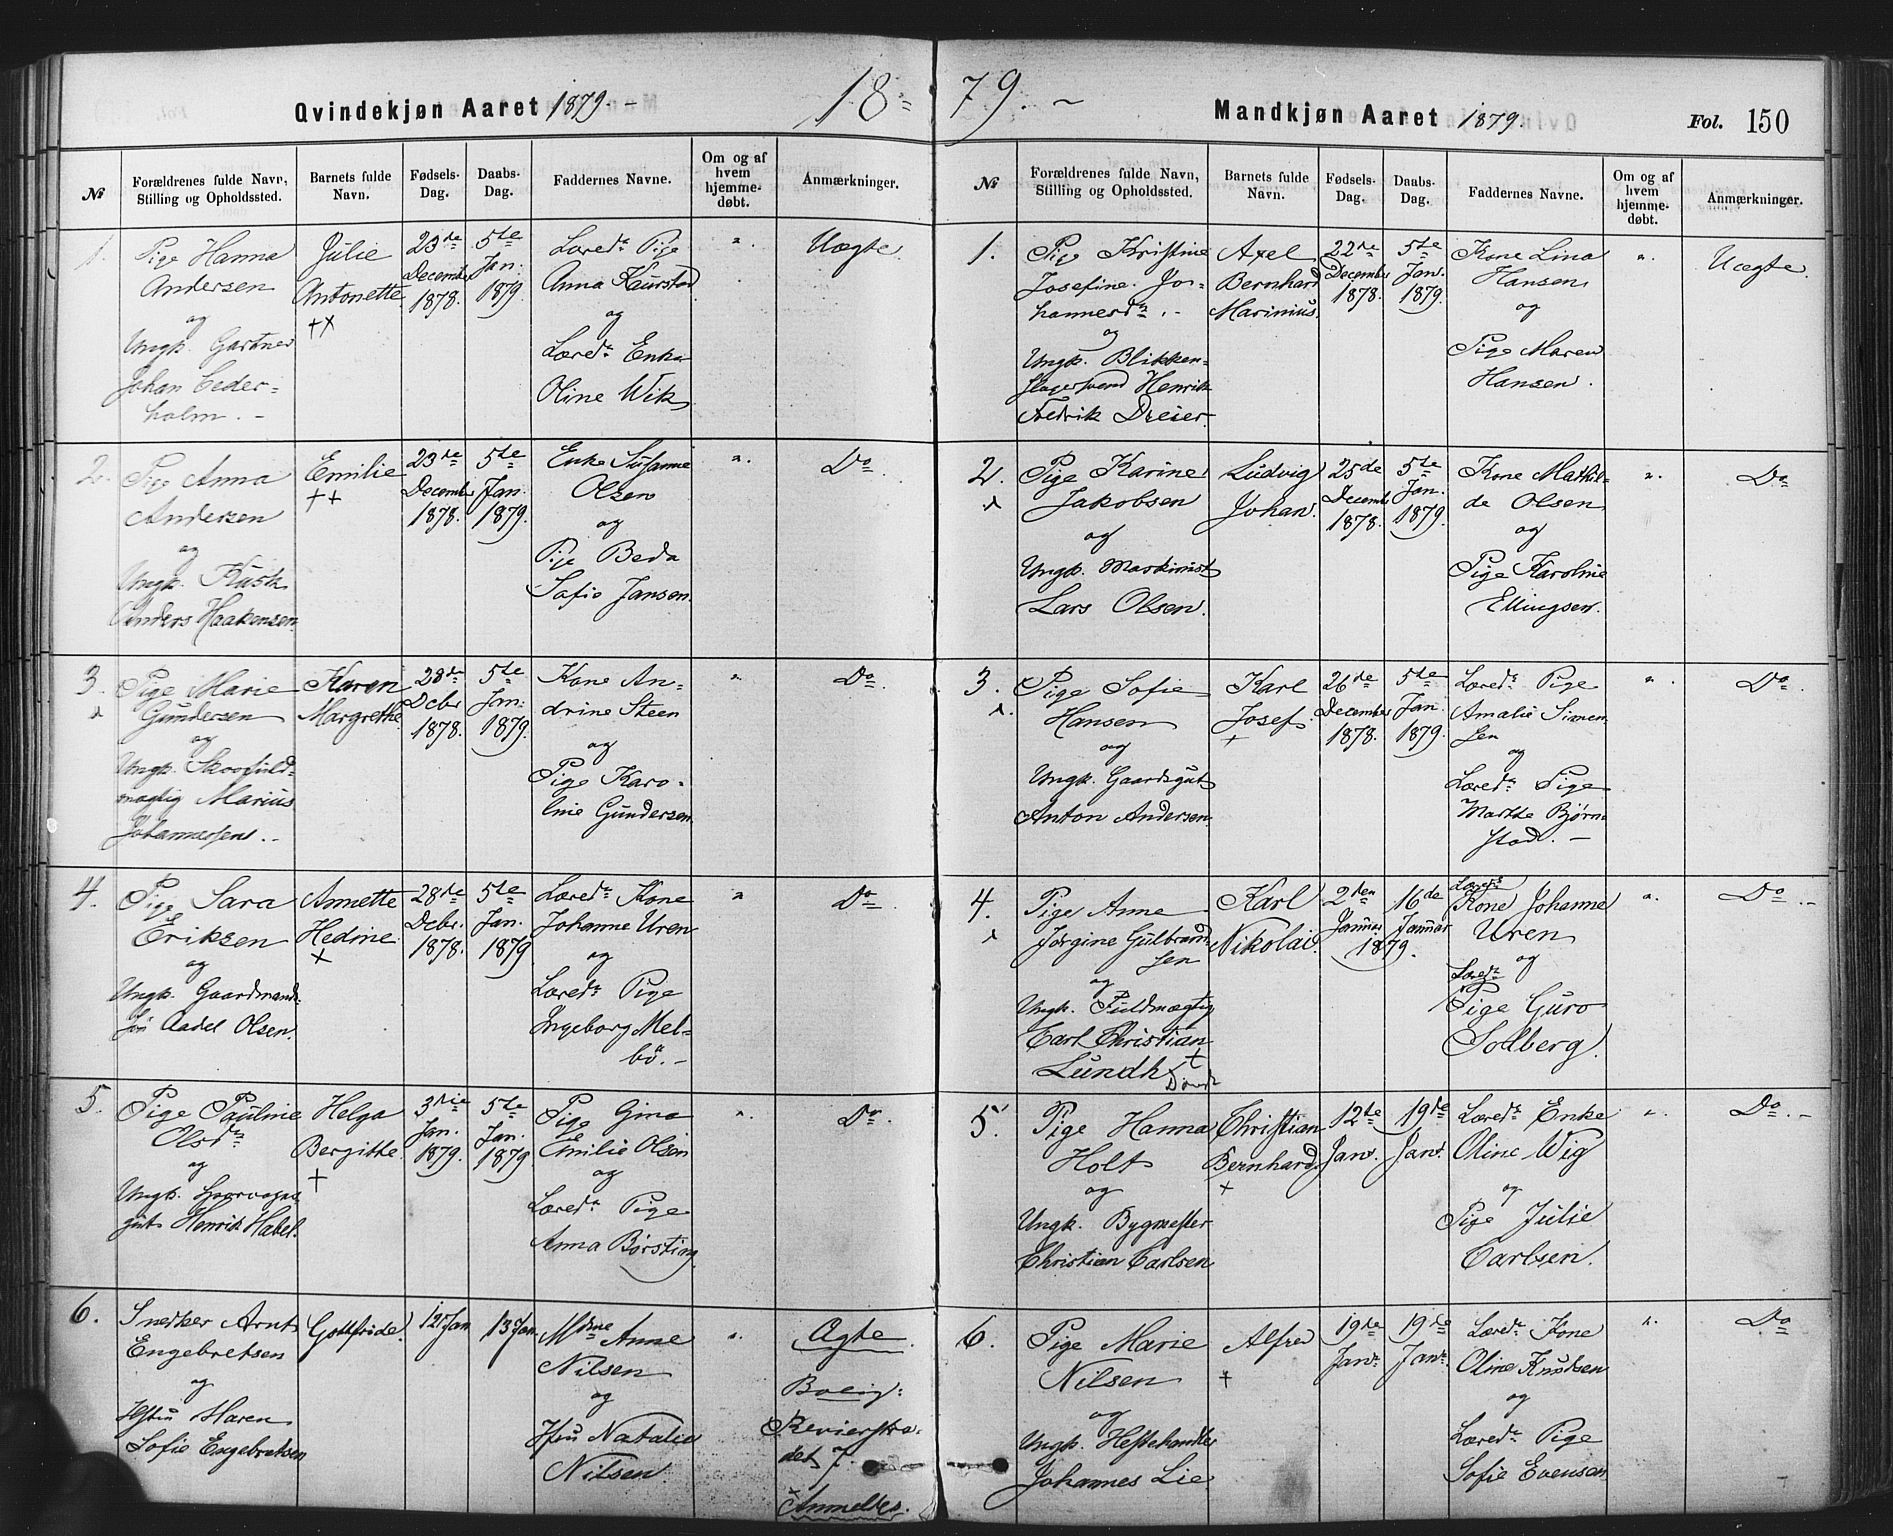 Qvindekjøn Aaret 1879.-
18=
№
Forældrenes fulde Navn,
Stilling og Opholdssted.
Barnets fulde
Navn.
Fødsels-
Dag.
Daabs-
Dag.
Faddernes Navne.
Om og af
hvem
hjemme-
døbt.
Anmærkninger.
1.
Pige Hanna
Andersen
og
Ungk. Gartner
Johan Ceder-
holm.-
Julie
Antonette
23de
Decembr
1878.
5te
Jan.
1879.
Læred. Pige
Anna Kaurstad
og
Læred. Enke
Oline Wik
"
Uægte.
2.
Pige Anna
Andersen
og
Ungk. Kusk
Anders Haakensen
Emilie
23de
Decembr
1878.
5te
Jan.
1879.
Enke Susanne
Olsen
og
Pige Beda
Sofie Jansen.
"
Do
3.
Pige Marie
Gundersen
og
Ungk. Skoofuld-
mægtig Marius
Johannessen.-
Karen
Margrethe
28de
Debr
1878.
5te
Jan.
1879.
Kone An-
drine Steen
og
Pige Karo-
line Gundersen.
"
Do
4.
Pige Sara
Eriksen
og
Ungk. Gaardmands
Aadel Olsen.
Annette
Hedine
28de
Debr.
1878.
5te
Jan.
1879
Læred. Kone
Johanne Uren
og
Læred. Pige
Ingeborg Mel-
bö.-
"
Do
5.
Pige Pauline
Olsdr
og
Ungk. Sporvogns
gut Henrik Habel.
Helga
Bergitte
3die
Jan.
1879.
5te
Jan.
1879
Pige Gina
Emilie Olsen
og
Læred. Pige
Anna Børsting
"
Do.
6.
Snedker Arnt
Engebretsen
og
Hustru Maren
Sofie Engebretsen
Gottfride.
12 Jan
13 Jan
Mdme Anne
Nilsen
og
Hustru Natalie
Nilsen
"
Ægte.
Bolig:
Revierstra-
det 7.
Anmeldes.
79.-
Mandkjøn Aaret 1879.
Fol. 150
№
Forældrenes fulde Navn,
Stilling og Opholdssted.
Barnets fulde
Navn.
Fødsels-
Dag.
Daabs-
Dag.
Faddernes Navne.
Om og af
hvem
hjemme-
døbt.
Anmærkninger.
1.
Pige Kristine
Josefine Jo-
hannesdr.-
og
Ungk. Blikken-
slagersvend Henrik
Fredrik Dreier
Axel
Bernhard
Marinius.
22de
December
1878.
5te
Jan.
1879.
Kone Lina
Hansen
og
Pige Maren
Hansen.
"
Uægte.
2.
Pige Karine
Jakobsen
og
Ungk. Maskinist
Lars Olsen.
Ludvig
Johan.
25de
Decembr
1878.
5te
Jan.
1879.
Kone Mathil-
de Olsen
og
Pige Karoline
Ellingsen.
"
Do
3.
Pige Sofie
Hansen
og
Ungk. Gaardsgut
Anton Andersen.
Karl
Josef.
26de
December
1878.
5te
Jan.
1879.
Læred. Pige
Amalie Simen-
sen
og
Læred. Pige
Marthe Bjørn-
stad.-
"
Do
4.
Pige Anne
Jørgine Gulbrand-
sen
og
Ungk. Fuldmægtig
Carl Christian
Lundh
Karl
Nikolai.
2den
Januar
1879.
16de
Januar
Læred.
Kone Johanne
Uren
og
Læred.
Pige Guro
Solberg.
"
Do.-
5.
Pige Hanna
Holt
og
Ungk. Bygmester
Christian Carlsen
Christian
Bernhard.
12te
Jan.
19de
Jan.
Læred. Enke
Oline Wig
og
Pige Julie
Carlsen.
"
Do.-
6.
Pige Marie
Nilsen
og
Ungk. Hestehandler
Johannes Lie
Alfred
19de
Janr.
19de
Janr.
Læred. Kone
Oline Knudsen
og
Læred. Pige
Sofie Evensen
"
Do